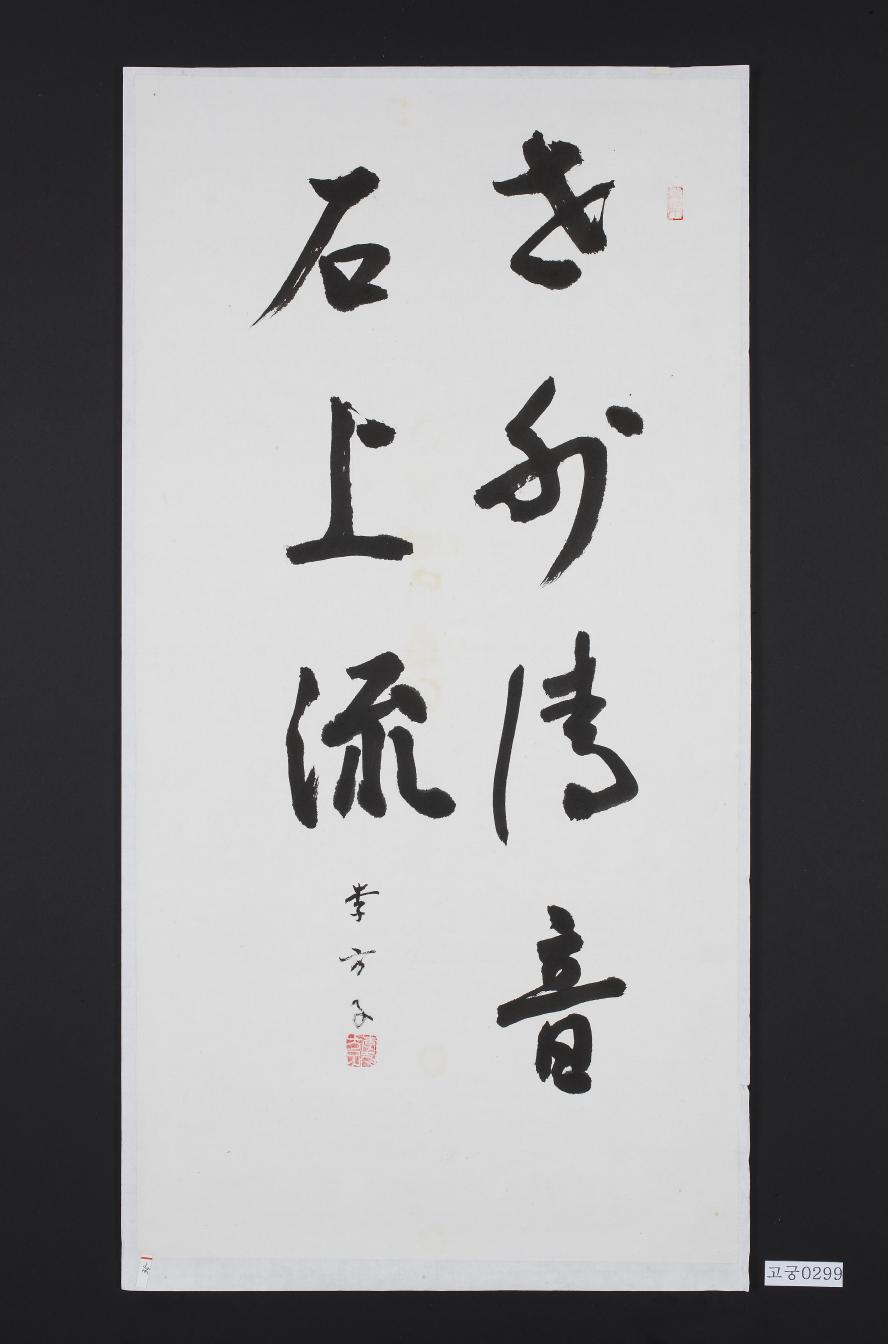 世外傳音
石上流
李方子
고궁0299